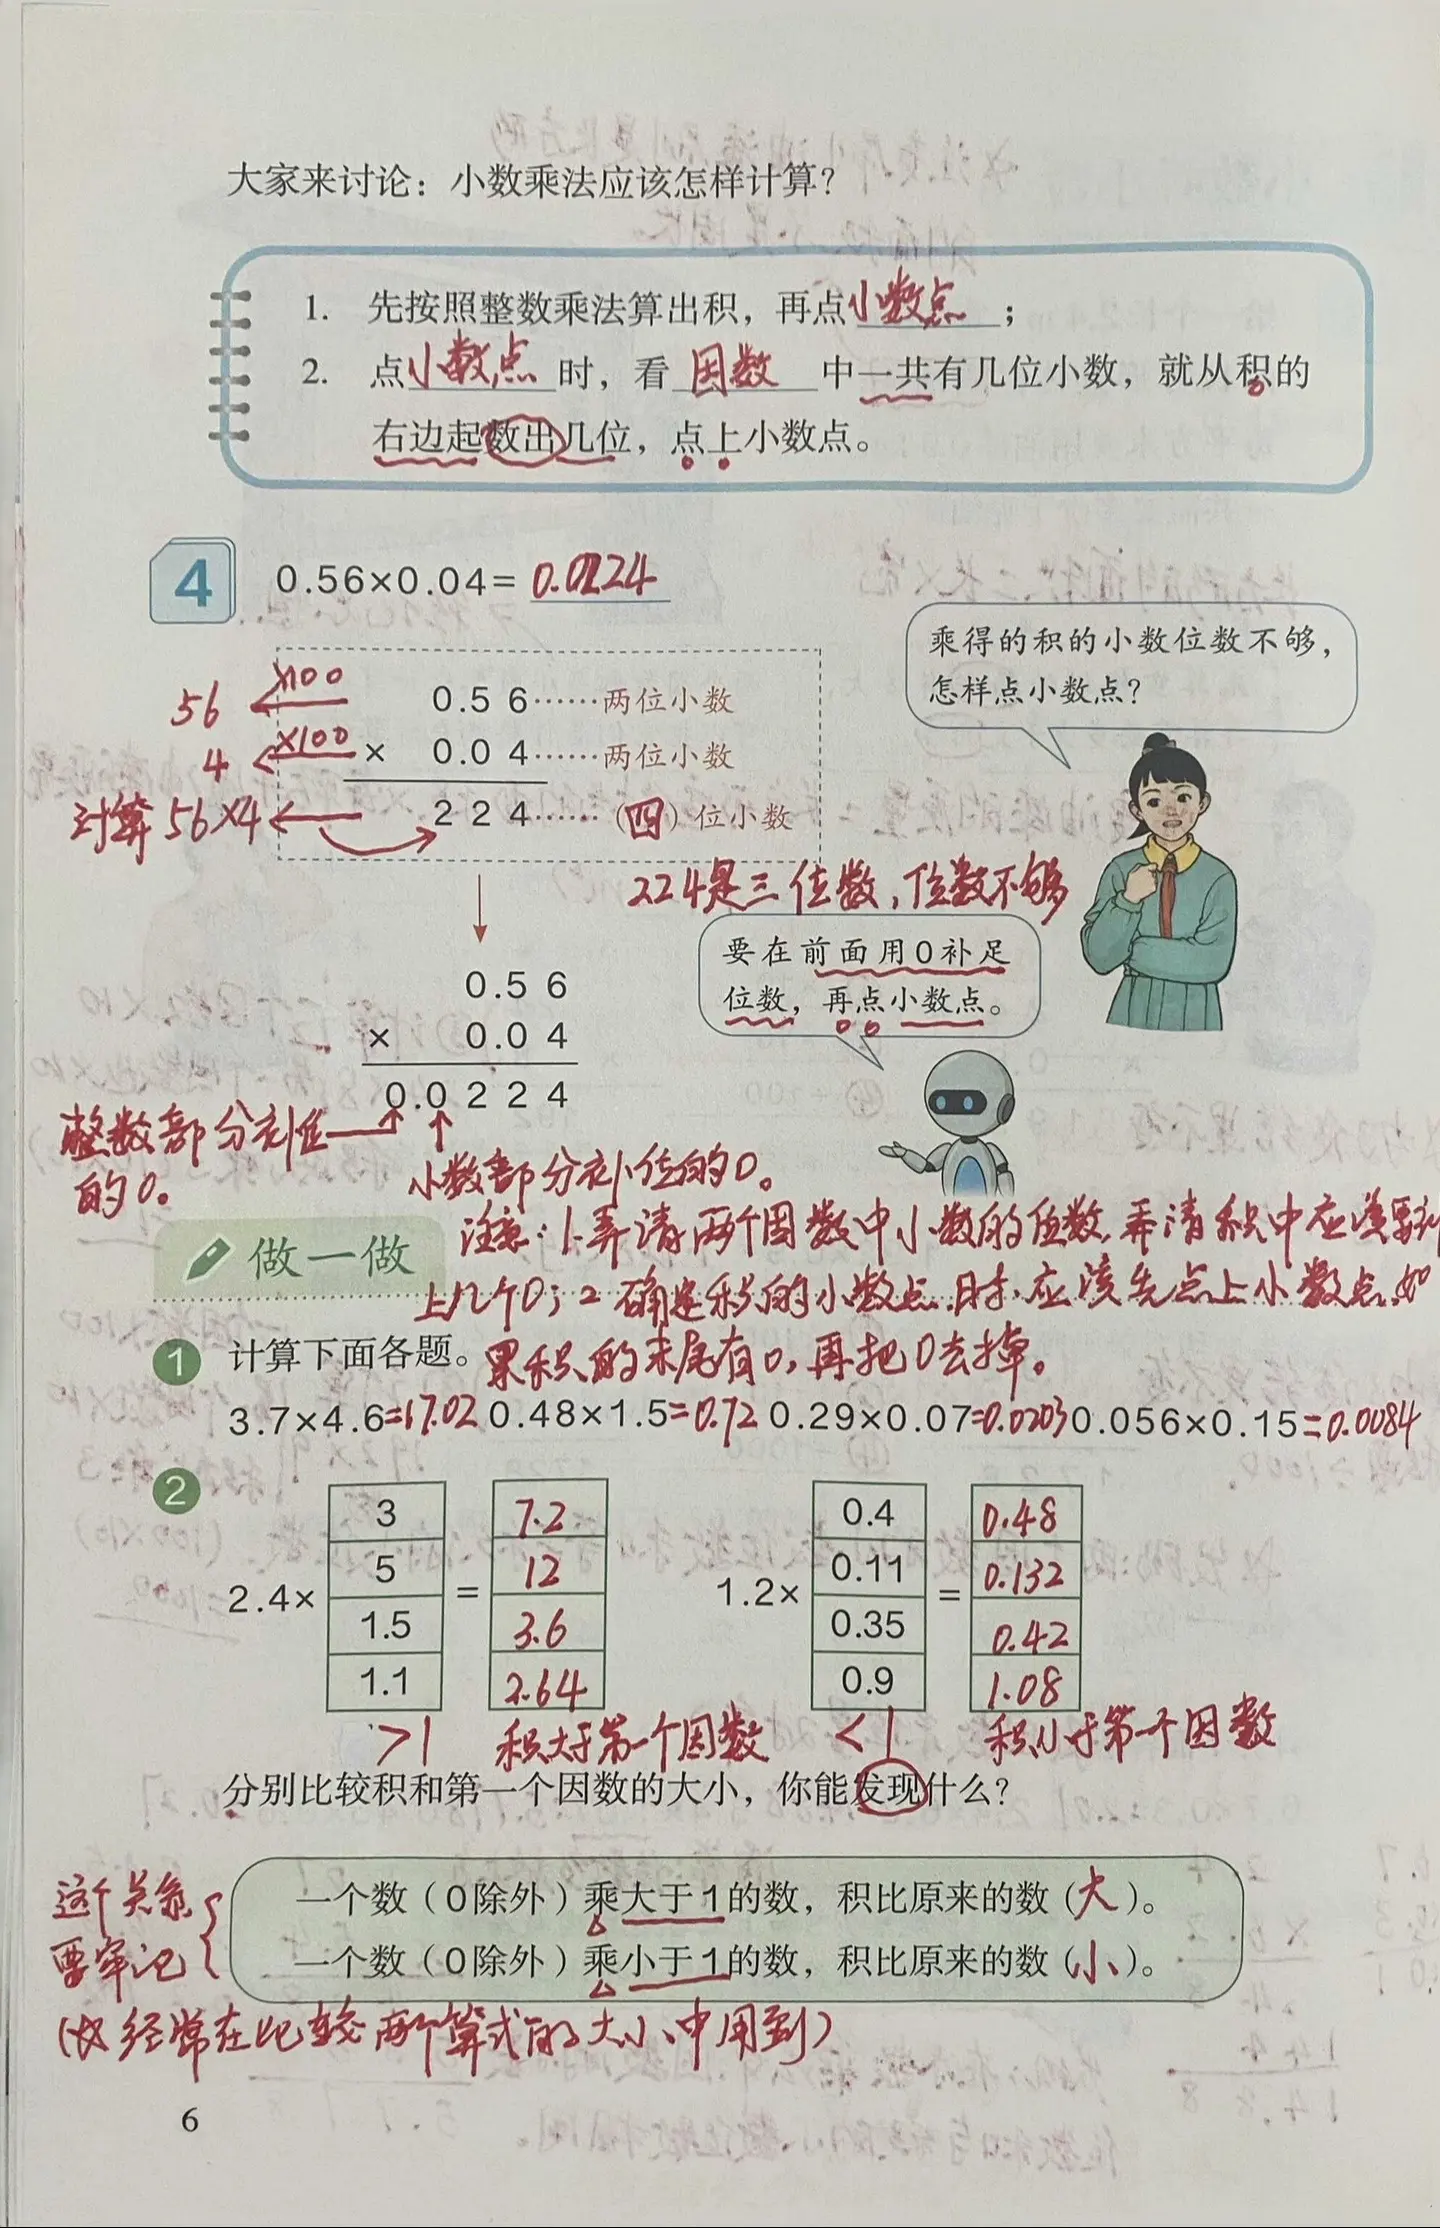 大家来讨论：小数乘法应该怎样计算？
1. 先按照整数乘法算出积，再点小数点；
2. 点小数点时，看因数中一共有几位小数，就从积的
右边起数出几位，点上小数点。
4 0.56×0.04=0.0224
乘得的积的小数位数不够，
怎样点小数点？
56 ×100 0.56……两位小数
4 ×100 × 0.04……两位小数
计算56×4 224……（四）位小数
224是三位数，位数不够
要在前面用0补足
位数，再点小数点。
0.56
× 0.04
0.0224
整数部分补位
的0。
小数部分补位的0。
注意：1.弄清两个因数中小数的位数，弄清积中应该要补
上几个0；2确定积的小数点时，应该先点上小数点，如
果积的末尾有0，再把0去掉。
做一做
1 计算下面各题。
3.7×4.6=17.02 0.48×1.5=0.72 0.29×0.07=0.0203 0.056×0.15=0.0084
2
3 7.2 0.4 0.48
5 12 0.11 0.132
2.4× = 1.2× =
1.5 3.6 0.35 0.42
1.1 2.64 0.9 1.08
>1 积大于第一个因数 <1 积小于第一个因数
分别比较积和第一个因数的大小，你能发现什么？
这个关系
要牢记
一个数（0除外）乘大于1的数，积比原来的数（大）。
一个数（0除外）乘小于1的数，积比原来的数（小）。
经常在比较两个算式的大小中用到）
6